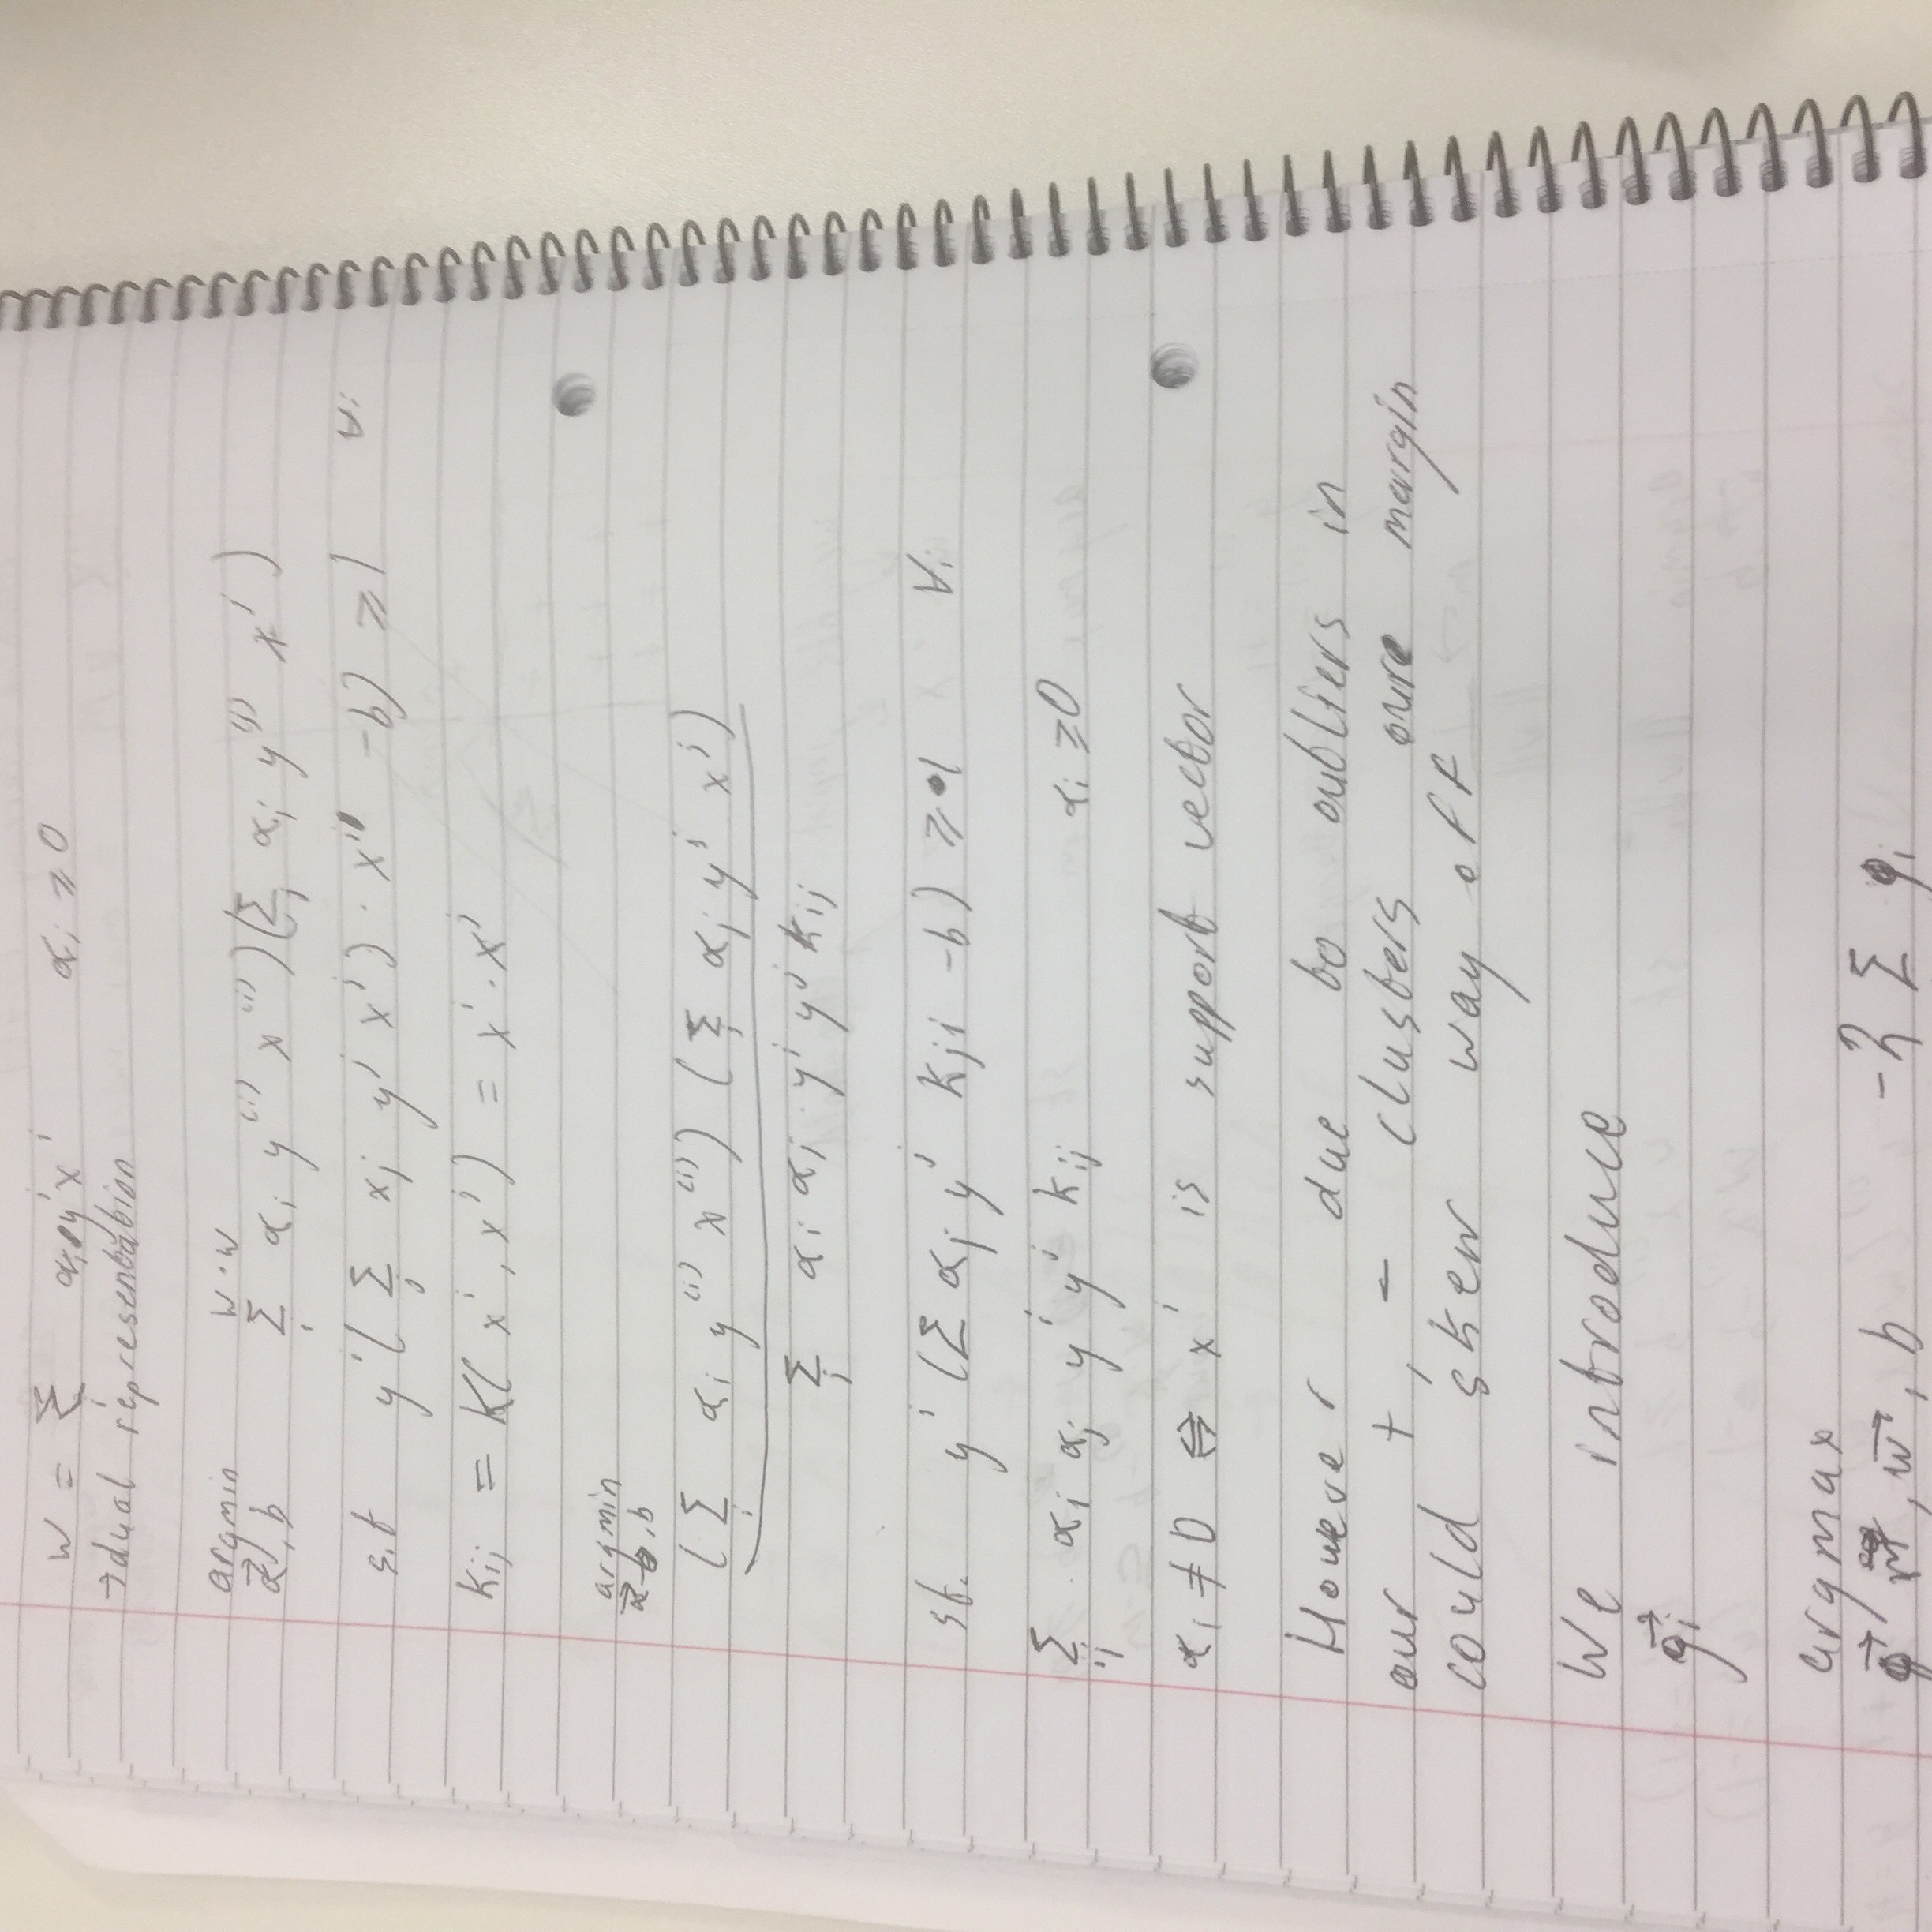 w = Σ_i α_i y^i x^i α_i ≥ 0
→dual representation
argmin w · w
α⃗, b Σ_i α_i y^(i) x^(i) ) ( Σ_j α_j y^(j) x^j )
s.t y^i ( Σ_j x_j y^j x^j ) · x^i - b ) ≥ 1 ∀i
K_ij = K( x^i , x^j ) = x^i · x^j
argmin
α⃗, b
( Σ_i α_i y^(i) x^(i) ) ( Σ_j α_j y^j x^j )
Σ_j α_i α_j y^i y^j K_ij
st. y^i ( Σ α_j y^j K_ji - b ) ≥ 1 ∀i
Σ_ij α_i α_j y^i y^j K_ij α_i ≥ 0
α_i ≠ 0 ⇔ x^i is support vector
However due to outliers in
our +, - clusters oure margin
could skew way off
We introduce
argmax
w⃗, b